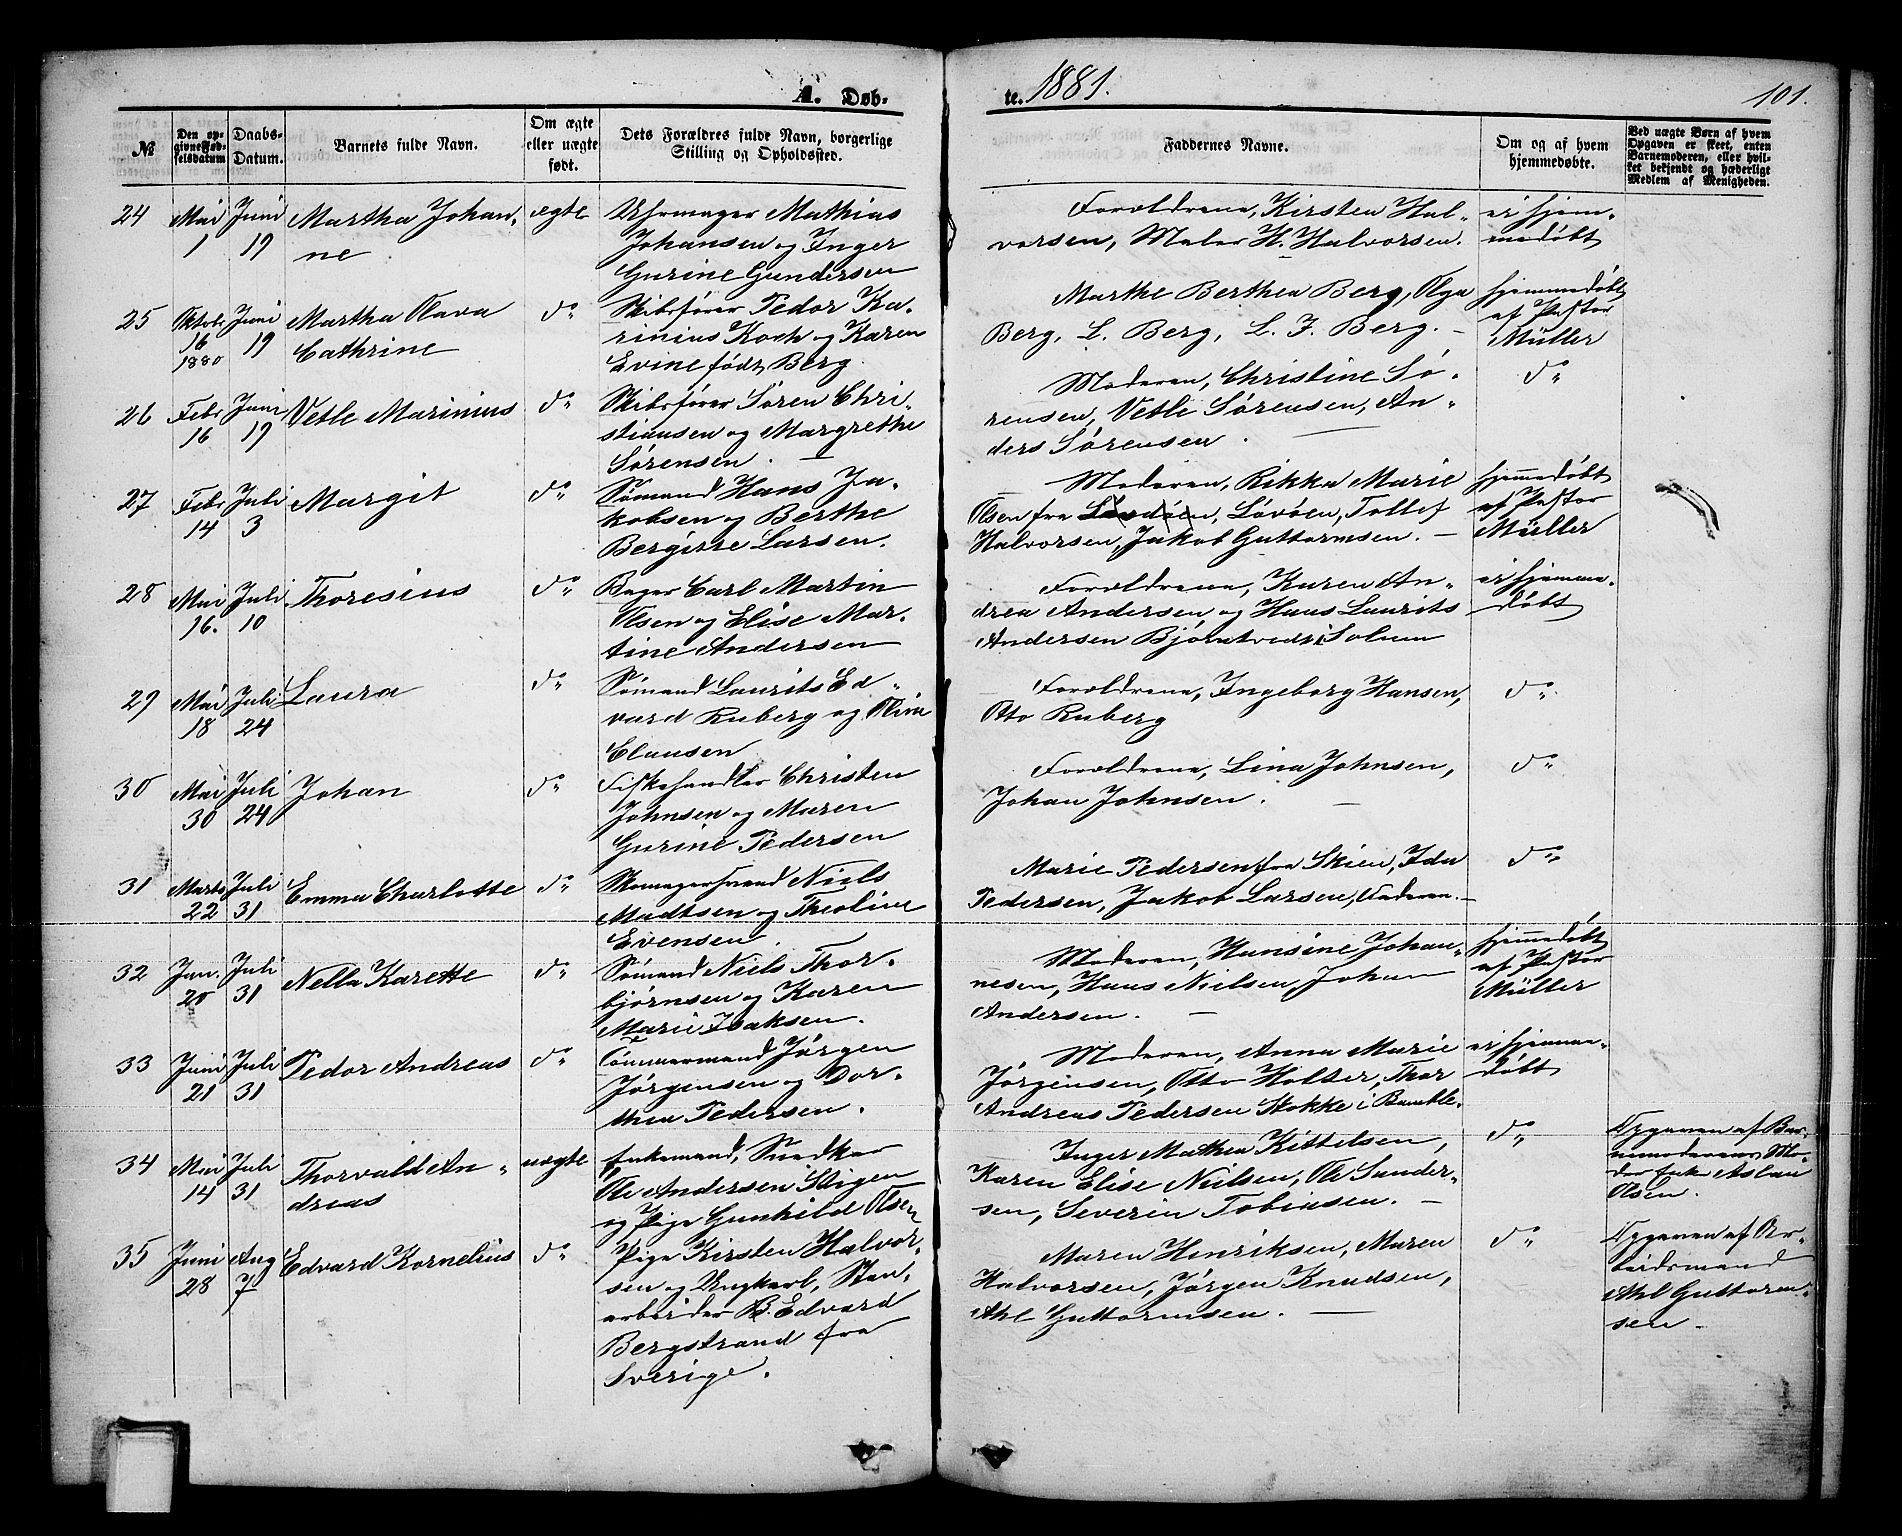 A. Døb-
te. 1881.
101.
№
Den op-
givne Fød-
selsdatum
Daabs-
Datum.
Barnets fulde Navn.
Om ægte
eller uægte
født.
Dets Forældres fulde Navn, borgerlige
Stilling og Opholdssted.
Faddernes Navne.
Om og af hvem
hjemmedøbte.
Ved uægte Børn af hvem
Opgaven er skeet, enten
Barnemoderen, eller hvil-
ket bekjendt og hæderligt
Medlem af Menigheden.
24
Mai
1
Juni
19
Martha Johan-
ne
ægte
Uhrmager Mathias
Johansen og Inger
Gurine Gundersen
Forældrene, Kirsten Hal-
vorsen, Maler H. Halvorsen.
ei hjem-
medøbt
25
Oktobr
16
1880
Juni
19
Martha Olava
Cathrine
do
Skibsfører Pedor Ka-
rinius Koch og Karen
Evine født Berg.
Marthe Berthea Berg, Olga
Berg, L. Berg, L. J. Berg. -
hjemmedøbt
af Pastor
Müller
26
Febr
16
Juni
19
Vetle Marinius
do
Skibsfører Søren Chri-
stiansen og Margrethe
Sørensen. -
Moderen, Christine Sø-
rensen, Vetle Sørensen, An-
ders Sørensen. -
do
27
Febr
14
Juli
3
Margit
do
Sømand Hans Ja-
kobsen og Berthe
Bergitte Larsen.
Moderen, Rikka Marie
Olsen fra Løvøen, Tollef
Halvorsen, Jakob Guttormsen. -
hjemmedøbt
af Pastor
Müller
28
Mai
16.
Juli
10
Thoresius
do
Bager Carl Martin
Olsen og Elise Mar-
tine Andersen
Forældrene, Karen An-
drea Andersen og Hans Laurits
Andersen Bjørntvedt i Solum
ei hjemme-
døbt
29
Mai
18
Juli
24
Laura
do
Sømand Laurits Ed-
vard Ruberg og Oline
Clausen
Forældrene, Ingeborg Hansen,
Otto Ruberg
do
30
Mai
30
Juli
24
Johan
do
Fiskehandler Christen
Johnsen og Maren
Gurine Pedersen
Forældrene, Lina Johnsen,
Johan Johnsen. -
do
31
Marts
22
Juli
31
Emma Charlotte
do
Skomagersvend Niels
Madtsen og Theoline
Evensen.
Marie Pedersen fra Skien, Ida
Pedersen, Jakob Larsen, Faderen. -
do
32
Jan.
20
Juli
31
Nella Karette
do
Sømand Niels Thor-
bjørnsen og Karen
Marie Isaksen.
Moderen, Hansine Johan-
nesen, Hans Nielsen, Johan
Andersen. -
hjemmedøbt
af Pastor
Müller
33
Juni
21
Juli
31
Pedor Andreas
do
Tømmermand Jørgen
Jørgensen og Dor-
thea Pedersen.
Moderen, Anna Marie
Jørgensen, Otto Holter, Thor
Andreas Pedersen Stokke i Bamble.
ei hjemme-
døbt
34
Mai
14
Juli
31
Thorvald An-
dreas
uægte
Enkemand, Snedker
Ole Andersen Stigen
og Pige Gunhild Olsen
Inger Mathea Kittelsen,
Karen Elise Nielsen, Ole Gunder-
sen, Severin Tobiasen. -
do
Opgaven af Bar-
nemoderens Mo-
der Enke Aslau
Olsen.
35
Juni
28
Aug
7
Edvard Kornelius
do
Pige Kirsten Halvor-
sen og Ungkarl, Sten-
arbeider B. Edvard
Bergstrand fra
Sverige.
Maren Henriksen, Maren
Halvorsen, Jørgen Knudsen,
Abl Guttormsen. -
do
Opgaven af Ar-
beidsmand
Abl Guttorm-
sen -